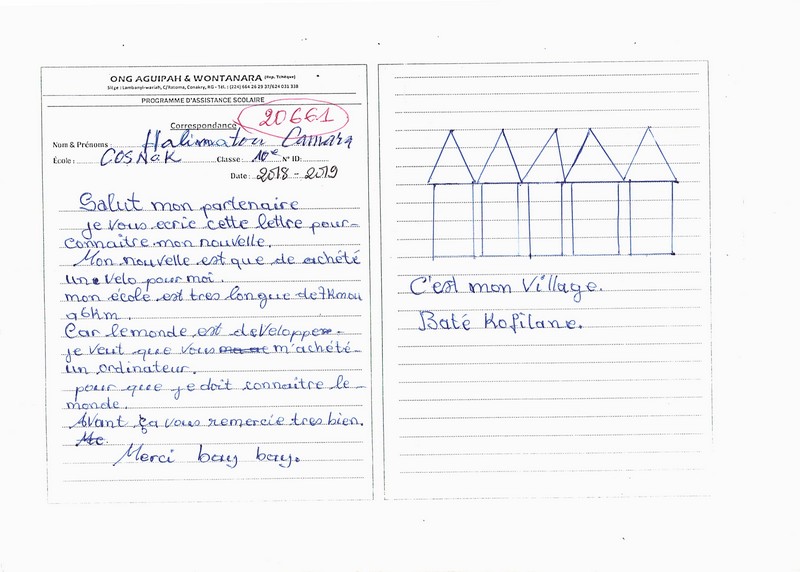 ONG AGUIPAH & WONTANARA (Rep. Tchèque)
Siège : Lambanyi-wariah, C/Ratoma, Conakry, RG - Tél. : (224) 664 26 29 37/624 031 338
PROGRAMME D'ASSISTANCE SCOLAIRE
Correspondance 20661
Nom & Prénoms : Halimatou Camara
École : COSNaK Classe : 10e N° ID:
Date : 2018 - 2019
Salut mon partenaire
je vous ecric cette lettre pour-
connaître mon nouvelle.
Mon nouvelle est que de achété
une velo pour moi.
mon école est tres longue de 7kmou
a6km.
Car lemonde est developper.
je veut que vous m'achété-
un ordinateur.
pour que je doit connaître le-
monde.
Avant ça vous remercie tres bien.
Merci bay bay.
C'est mon Village.
Baté Kofilane.